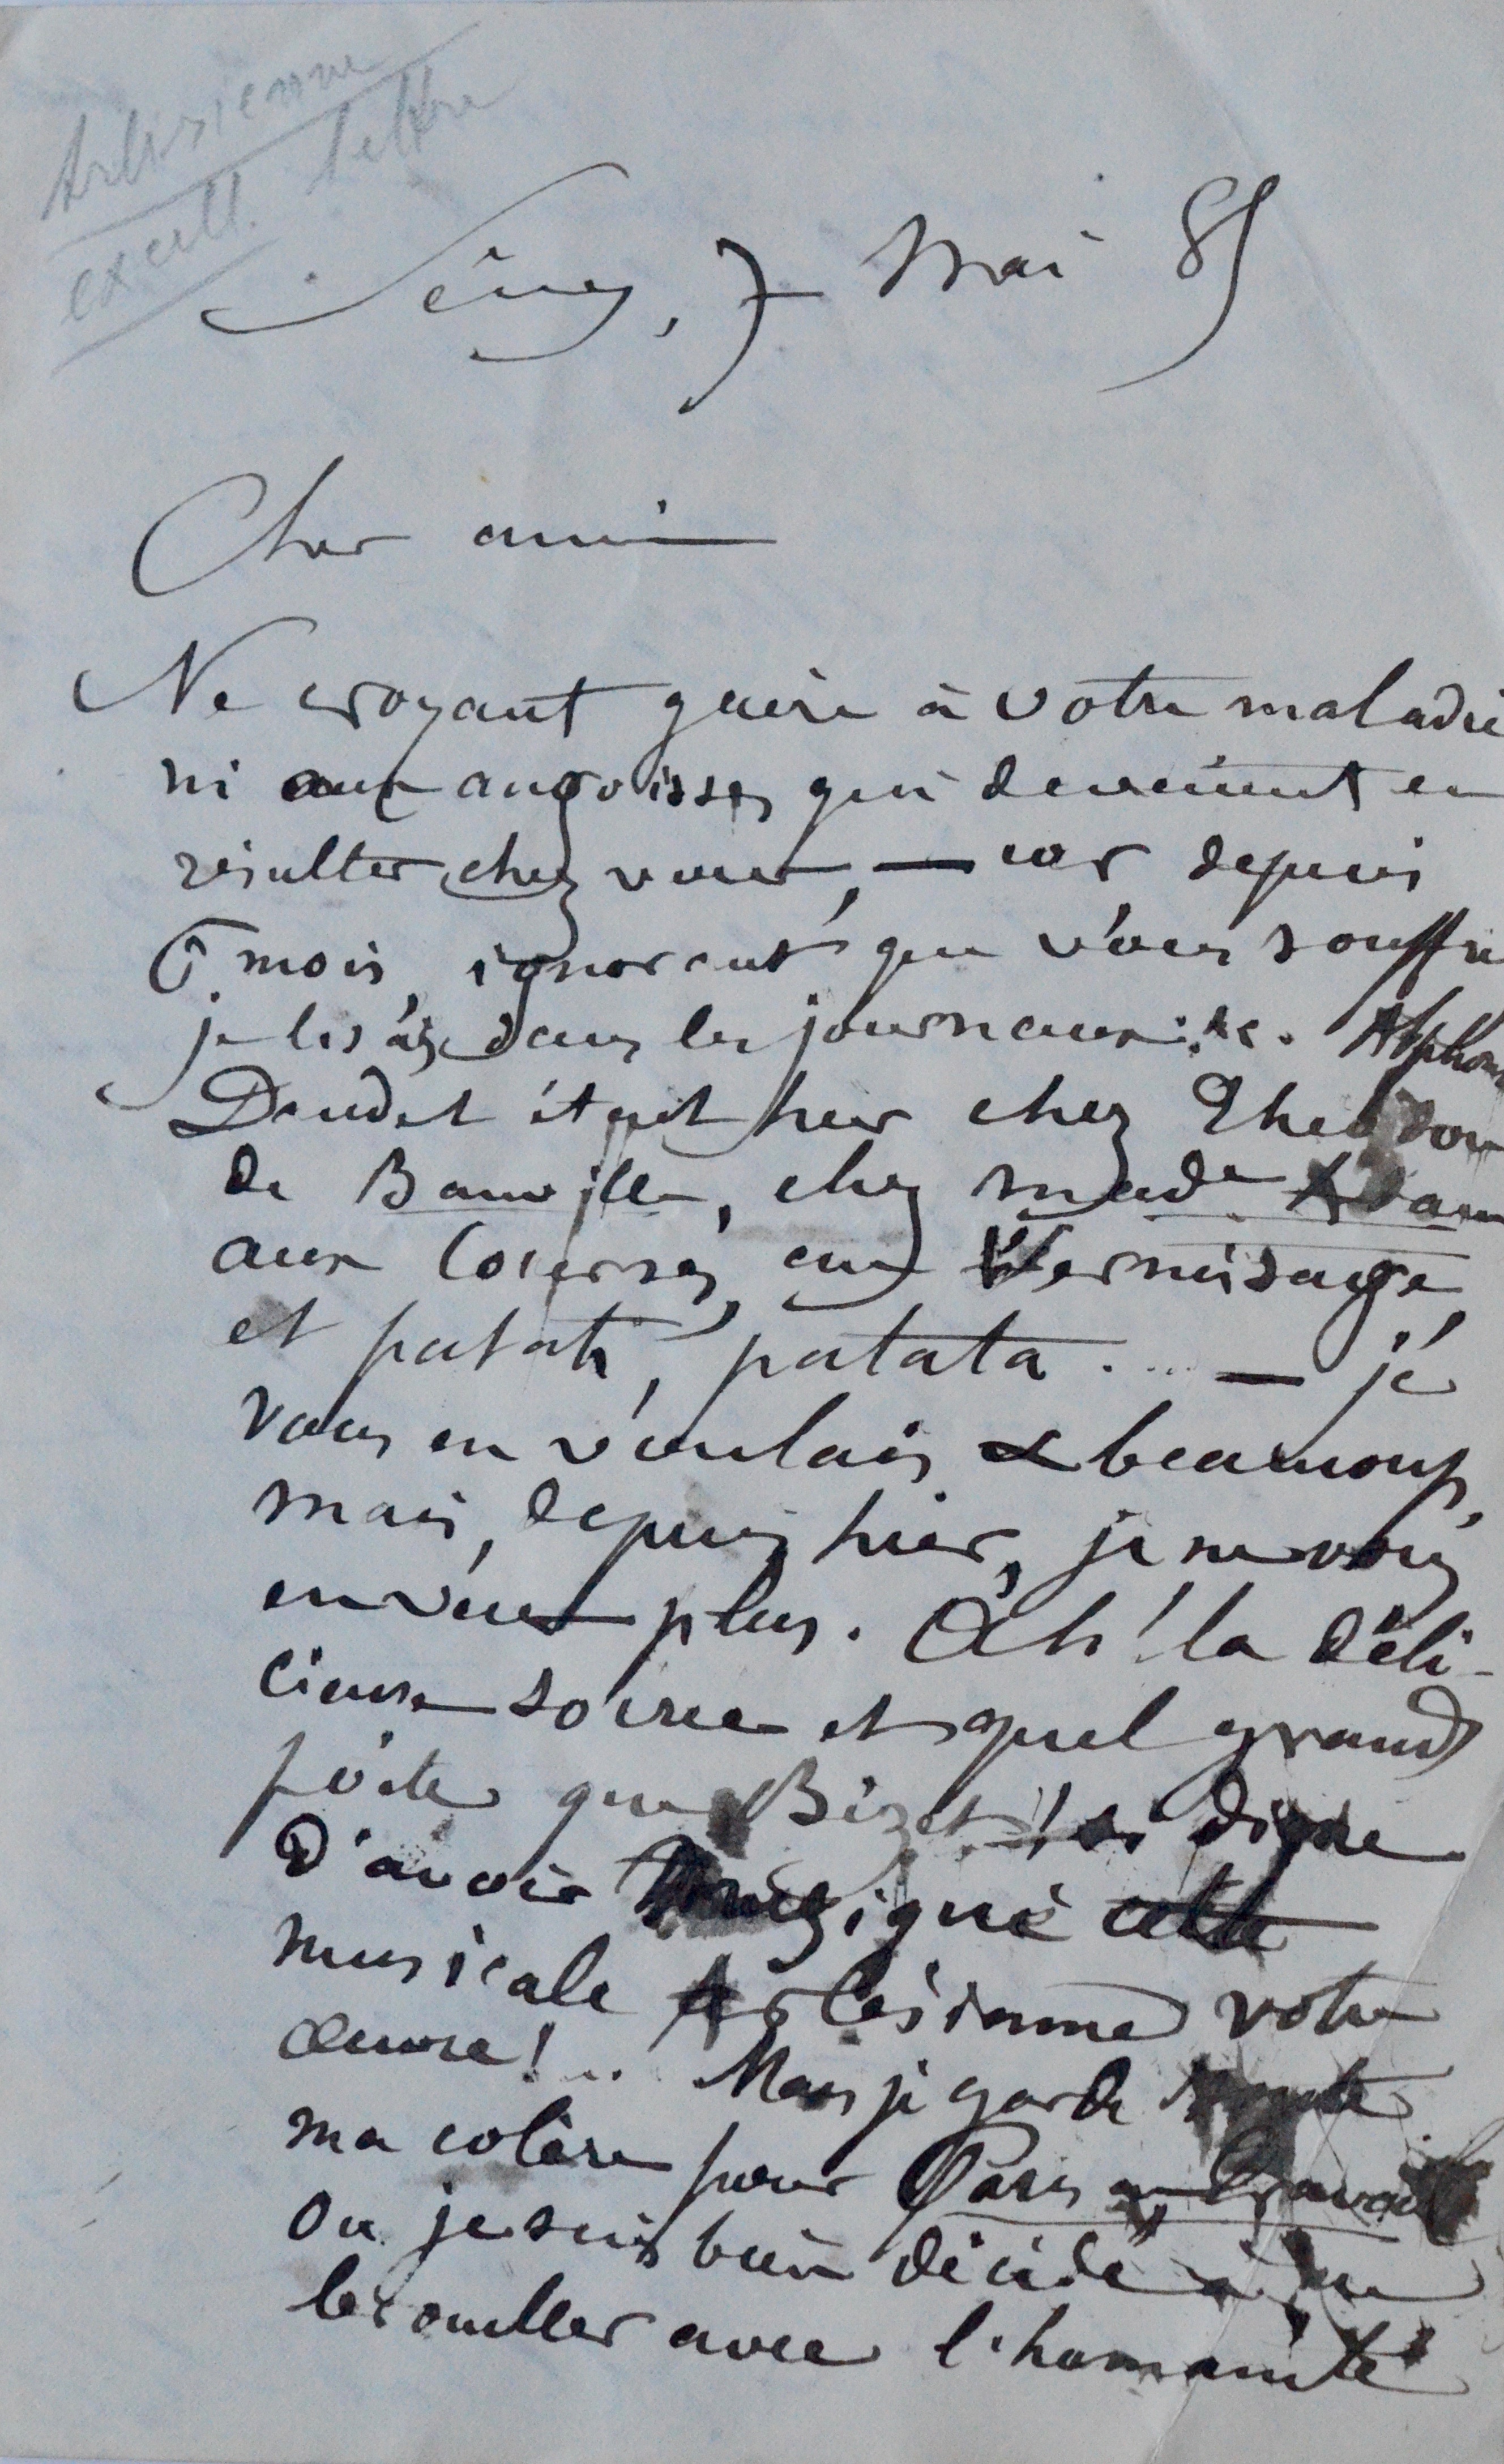 Arlésienne
excell. lettre
7 Mai 85
Cher ami
Ne croyant guère à votre maladie
ni aux angoisses qui devaient en
résulter chez vous, — car depuis
6 mois, ignorant que vous souffriez
je lisais dans les journaux : M. Alphonse
Daudet était hier chez Théodore
de Banville, chez made Adam
aux Courses, au Vernissage,
et patati, patata .... — je
vous en voulais beaucoup,
mais, depuis hier, je ne vous
en veux plus. Ah ! la déli-
cieuse soirée et quel grand
poète que Bizet ! si digne
d'avoir musiqué cette
musicale Arlésienne votre
œuvre ! .. Mais je garde toute
ma colère pour
où je suis bien décidé à me
brouiller avec l'humanité